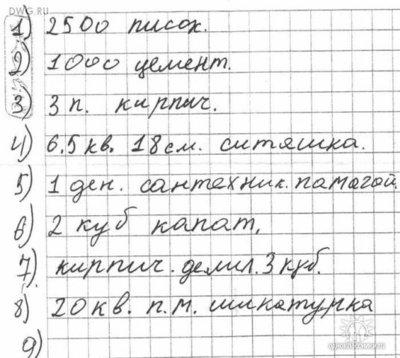 DWG.RU
1) 2500 писок.
2) 1000 цемент.
3) 3 п. кирпич.
4) 6.5 кв. 18 см. ситяшка.
5) 1 ден. сантехник. памагой.
6) 2 куб капат.
7) кирпич. делил. 3 куб.
8) 20 кв. п.м. шикатурка
9)